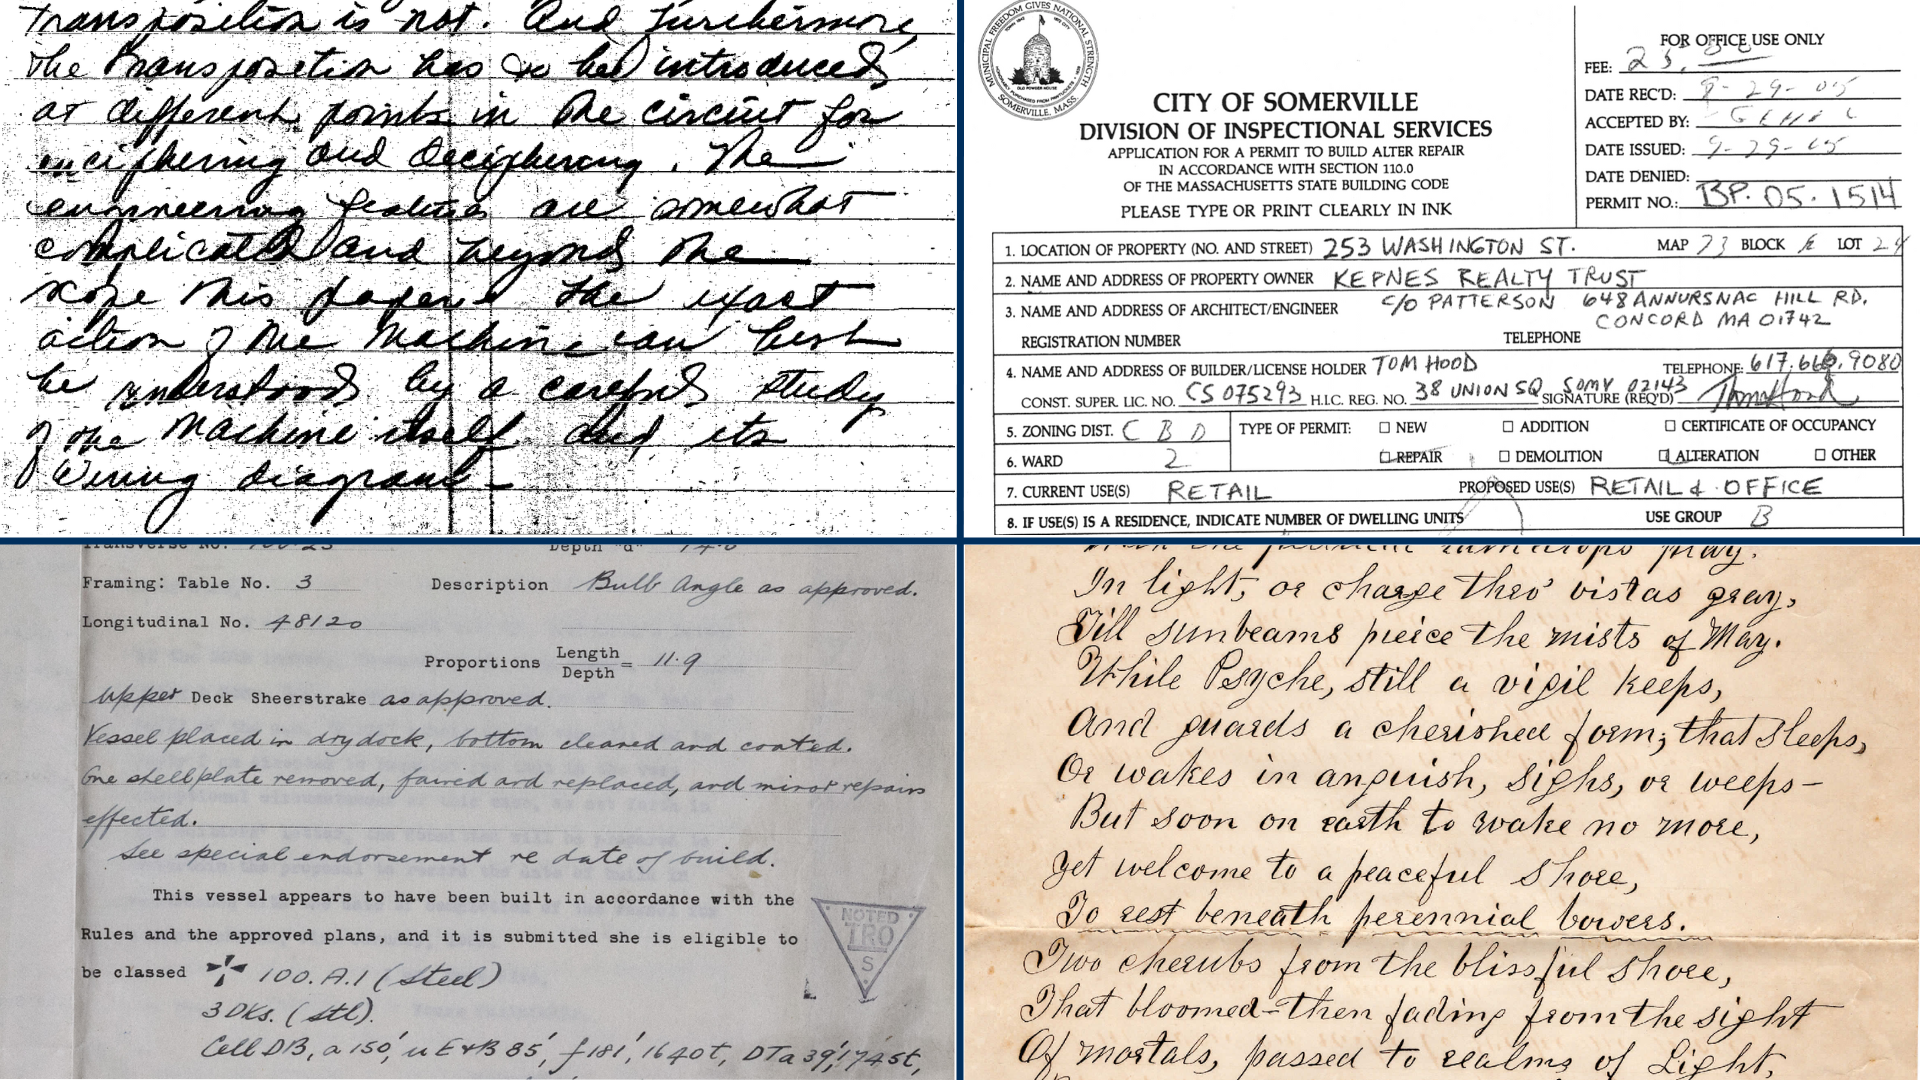 Transposition is not. And furthermore,
the transposition has to be introduced
at different points in the circuit for
enciphering and deciphering. The
engineering features are somewhat
complicated and beyond the
scope this paper. The exact
action of the machine can best
be understood by a careful study
of the machine itself and its
wiring diagram-
MUNICIPAL FREEDOM GIVES NATIONAL STRENGTH
SOMERVILLE, MASS
CITY OF SOMERVILLE
DIVISION OF INSPECTIONAL SERVICES
APPLICATION FOR A PERMIT TO BUILD ALTER REPAIR
IN ACCORDANCE WITH SECTION 110.0
OF THE MASSACHUSETTS STATE BUILDING CODE
PLEASE TYPE OR PRINT CLEARLY IN INK
FOR OFFICE USE ONLY
FEE:
DATE REC'D: 9-29-05
ACCEPTED BY:
DATE ISSUED: 9-29-05
DATE DENIED:
PERMIT NO.: BP.05.1514
1. LOCATION OF PROPERTY (NO. AND STREET) 253 WASHINGTON ST. MAP 73 BLOCK E LOT 24
2. NAME AND ADDRESS OF PROPERTY OWNER KEPNES REALTY TRUST
3. NAME AND ADDRESS OF ARCHITECT/ENGINEER C/O PATTERSON 648 ANNURSNAC HILL RD.
CONCORD MA 01742
REGISTRATION NUMBER TELEPHONE
4. NAME AND ADDRESS OF BUILDER/LICENSE HOLDER TOM HOOD TELEPHONE: 617.666.9080
CONST. SUPER. LIC. NO. CS 075293 H.I.C. REG. NO. 38 UNION SQ SOMV 02143 SIGNATURE (REQ'D) Tom Hood
5. ZONING DIST. C B D TYPE OF PERMIT: NEW ADDITION CERTIFICATE OF OCCUPANCY
6. WARD 2 REPAIR DEMOLITION ALTERATION OTHER
7. CURRENT USE(S) RETAIL PROPOSED USE(S) RETAIL & OFFICE
8. IF USE(S) IS A RESIDENCE, INDICATE NUMBER OF DWELLING UNITS USE GROUP B
Transverse No. Depth "d"
Framing: Table No. 3 Description Bulb Angle as approved.
Longitudinal No. 48120
Proportions Length/Depth = 11.9
Upper Deck Sheerstrake as approved.
Vessel placed in drydock, bottom cleaned and coated.
One shellplate removed, faired and replaced, and minor repairs
effected.
See special endorsement re date of build.
This vessel appears to have been built in accordance with the
Rules and the approved plans, and it is submitted she is eligible to
be classed 100.A.1 (Steel)
NOTED
TRO
S
3 DKs. (stl).
Cell DB, a 150', u E&B 85', f 181', 1640t, DTa 39', 1745t,
In light, or charge thro' vistas gray,
Till sunbeams pierce the mists of May.
While Psyche, still a vigil keeps,
And guards a cherished form; that sleeps,
Or wakes in anguish, sighs, or weeps-
But soon on earth to wake no more,
Yet welcome to a peaceful shore,
To rest beneath perennial bowers.
Two cherubs from the blissful shore,
That bloomed-then fading from the sight
Of mortals, passed to realms of Light,